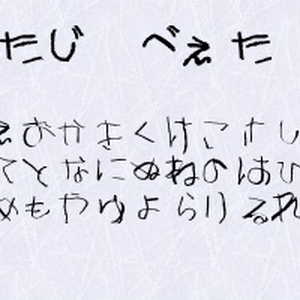 たじ べぇた
えおかきくけこさし
てとなにぬねのはひ
めもやゆよらりるれ